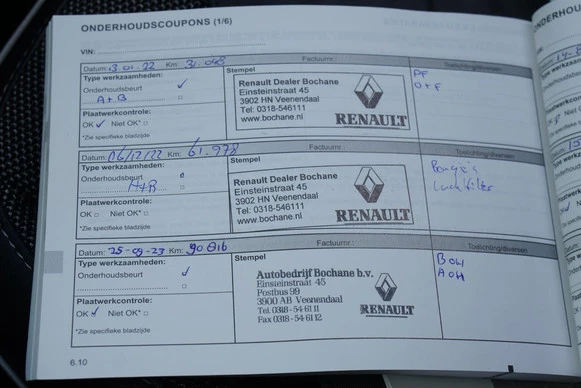 ONDERHOUDSCOUPONS (1/6)
VIN:
Datum: 13.01.22 Km: 31.048 Factuurnr.: Toelichting/diversen
Type werkzaamheden:
Onderhoudsbeurt ✓
A+B □
Plaatwerkcontrole:
OK ✓ Niet OK* □
*Zie specifieke bladzijde
Stempel
Renault Dealer Bochane
Einsteinstraat 45
3902 HN Veenendaal
Tel: 0318-546111
www.bochane.nl
RENAULT
PF
O+F
Datum: 06/12/22 Km: 61.978 Factuurnr.: Toelichting/diversen
Type werkzaamheden:
Onderhoudsbeurt
A+B □
Plaatwerkcontrole:
OK □ Niet OK* □
*Zie specifieke bladzijde
Stempel
Renault Dealer Bochane
Einsteinstraat 45
3902 HN Veenendaal
Tel: 0318-546111
www.bochane.nl
RENAULT
Bougie's
Luchtfilter
Datum: 25-09-23 Km: 90016 Factuurnr.: Toelichting/diversen
Type werkzaamheden:
Onderhoudsbeurt ✓
□
Plaatwerkcontrole:
OK ✓ Niet OK* □
*Zie specifieke bladzijde
Stempel
Autobedrijf Bochane b.v.
Einsteinstraat 45
Postbus 99
3900 AB Veenendaal
Tel 0318-54 61 11
Fax 0318-54 61 12
RENAULT
B OH
A OH
6.10